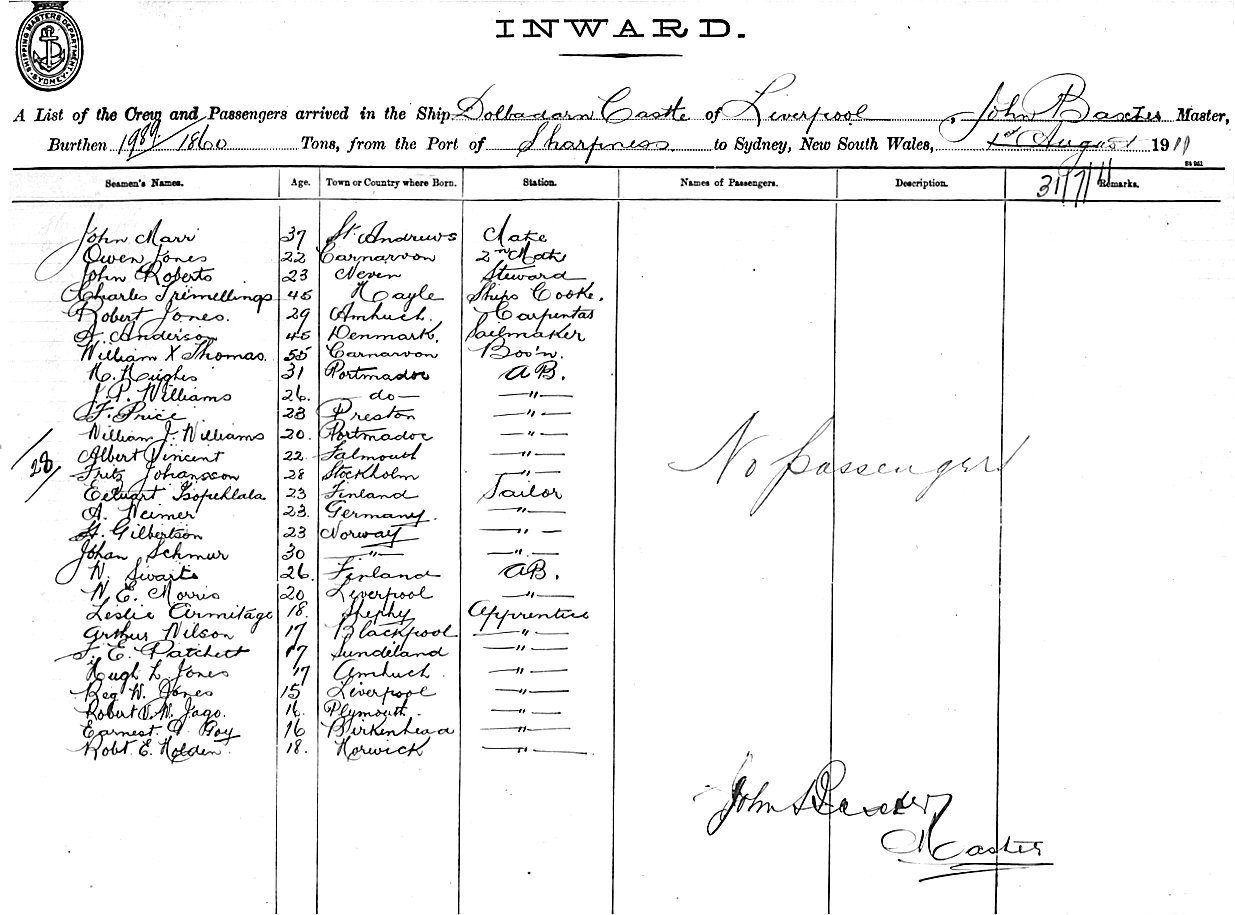 SHIPPING MASTERS DEPARTMENT. SYDNEY
INWARD.
A List of the Crew and Passengers arrived in the Ship Dolbadarn Castle of Liverpool, John Baxter Master,
Burthen 1989/1860 Tons, from the Port of Sharpness to Sydney, New South Wales, 1st August 1911
31/7/11
Seamen's Names. Age. Town or Country where Born. Station. Names of Passengers. Description. Remarks.
John Marr 37 St. Andrews Mate
Owen Jones 22 Carnarvon 2nd Mate
John Roberts 23 Neven Steward
Charles Tremellings 45 Hayle Ships Cooke.
Robert Jones. 29 Amluch. Carpenter
A. Anderson 45 Denmark. Sailmaker
William X Thomas. 55 Carnarvon Bos'n.
H. Hughes 31 Portmadoc AB.
J. P. Williams 26. —do— —"—
F. Price 23 Preston —"—
William J. Williams 20. Portmadoc —"—
Albert Vincent 22 Falmouth —"—
Fritz Johansson 28 Stockholm —"—
23 Finland Sailor
A. Neimer 23. Germany. —"—
H. Gilbertson 23 Norway —"—
Johan Schmur 30 —"— —"—
N. Swarts 26. Finland AB.
W. E. Morris 20 Liverpool —"—
Leslie Armitage 18. Apprentice
Arthur Wilson 17 Blackpool —"—
F. E. Patchett 17 Sundeland —"—
Hugh L. Jones 17 Amluch —"—
Reg W. Jones 15 Liverpool —"—
Robert V. N. Jago. 16. Plymouth. —"—
Earnest. A. Goy 16 Birkenhead —"—
Robt. E. Holden. 18. Horwick —"—
28
No passengers
John Baxter
Master